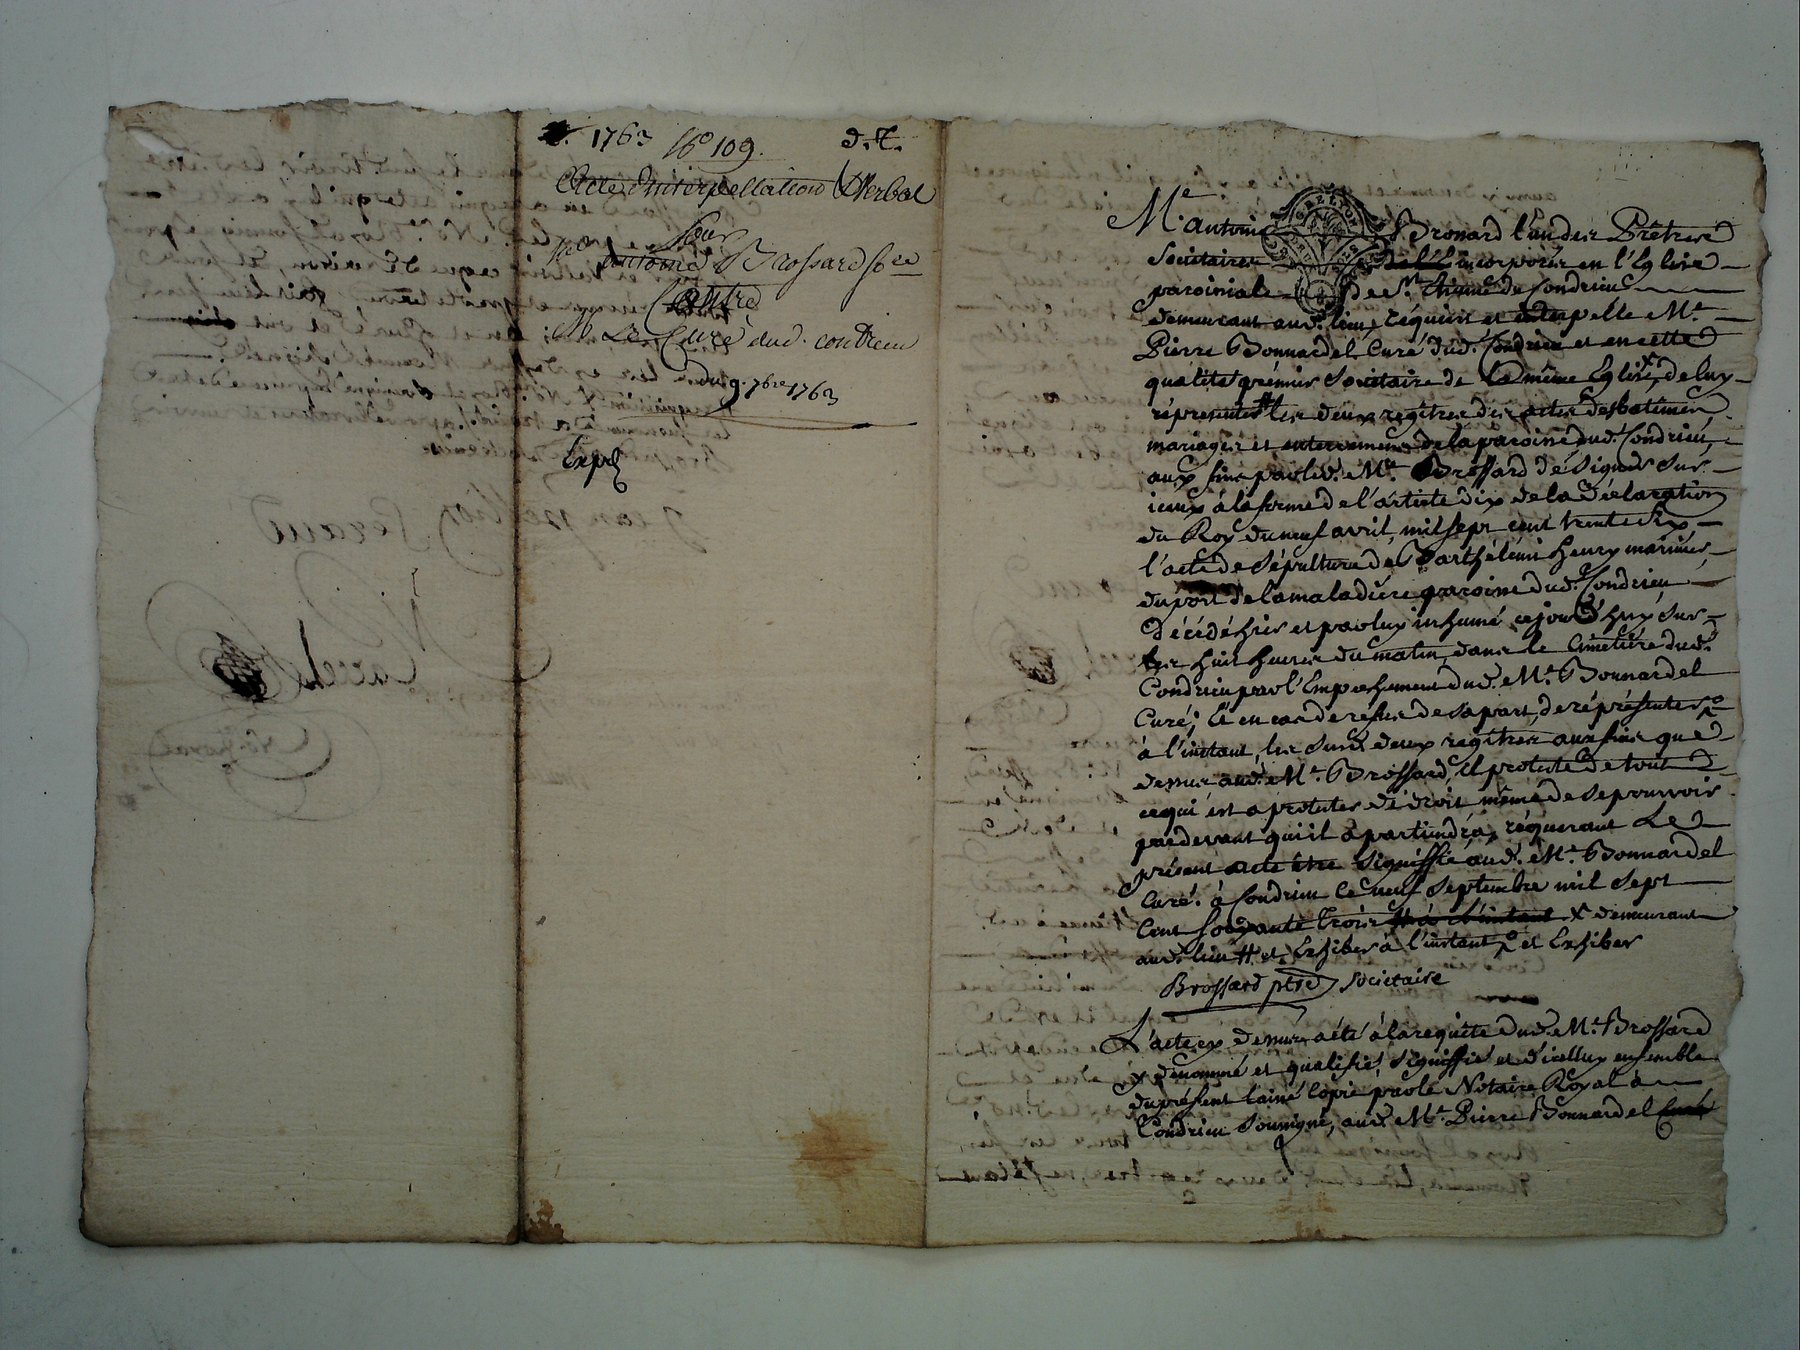 1763 No 109. d.t.
Acte d'interpellation Verbal
pour
Me Antoine Brossard sre
Contre
Me Le Curé dud. condrieu
du 9. 7bre 1763
Expé
Me. Antoine Brossard l'un des Prêtres
Societaires incorporés en l'Eglise
paroissiale de St. Etienne de Condrieu
demeurant aud. lieu, requiert et interpelle Me.
Pierre Bonnardel Curé dud. Condrieu et en cette
qualité premier Societaire de la même Eglise, x de luy
répresenter # les deux regitres des actes de batêmes
mariages et enterremens de la paroisse dud. Condrieu,
aux fins par led. Me. Brossard de signer sur
iceux à la forme de l'article dix de la Déclaration
du Roy du neuf avril, mil sept cent trente six
l'acte de Sépulture de Barthélemi henry marinier
du port de la maladière paroisse dud. Condrieu
décédé hier et par luy inhumé cejourd'huy sur
les huit heures du matin, dans le Cimetière dud.
Condrieu par l'Empechement dud. Me. Bonnardel
Curé; Et en cas de refus de sa part, de répresenter
à l'instant, les susd. deux regitres aux fins que
dessus aud. Me. Brossard, Il proteste de tout
ce qui est a protester de droit même de se pourvoir
pardevant qui il apartiendra, réquerant Le
présent acte être signiffié aud. Me. Bonnardel
Curé. à Condrieu Ce neuf Septembre mil sept
Cent soixante trois # à l'instant x demeurant
aud. lieu # et Exhiber à l'instant et Exhiber
Brossard ptre Societaire
L'acte cy dessus a été à la requête dud. Me. Brossard
x dénommé et qualifié, signiffié et d'icelluy ensemble
du présent laissé copie par le Notaire Royal à
Condrieu soussigné, aud. Me. Pierre Bonnardel Curé